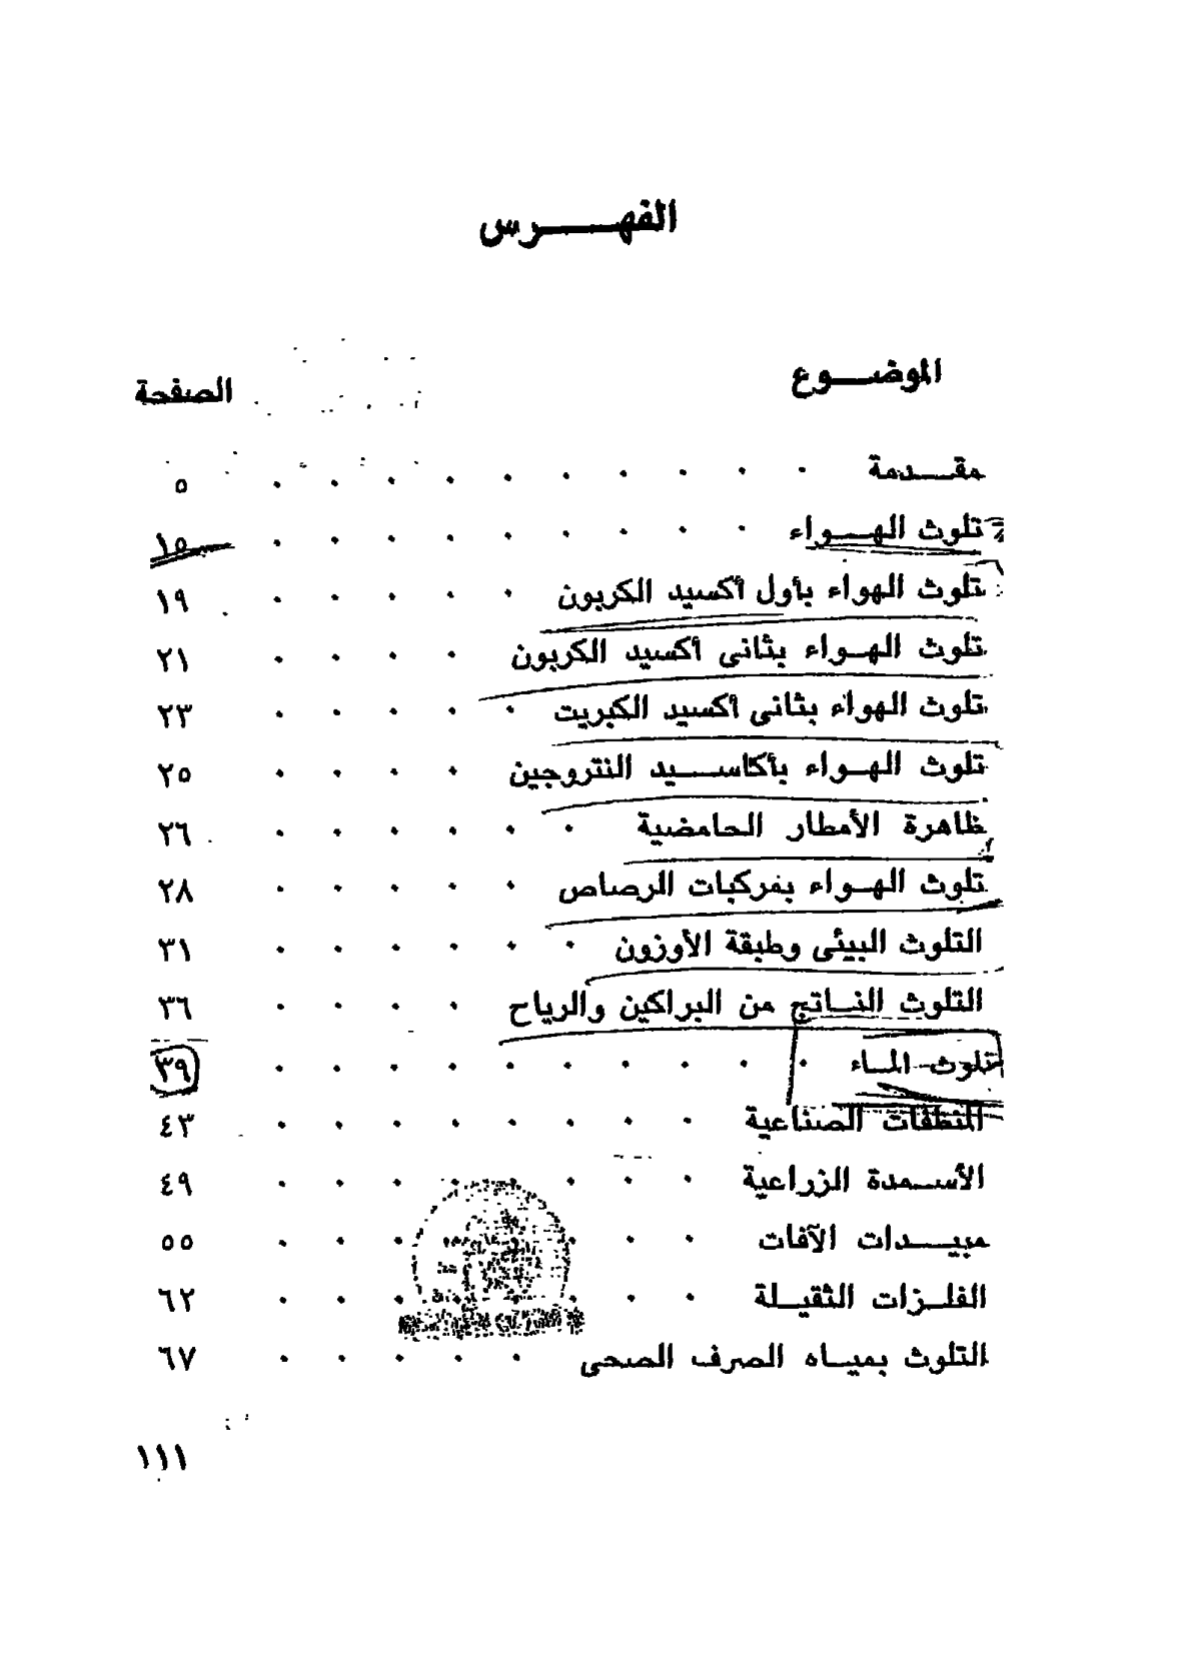 الفهرس
الموضوع الصفحة
مقدمة . . . . . . . . . . ٥
تلوث الهواء . . . . . . . . . ١٥
تلوث الهواء بأول أكسيد الكربون . . . . . ١٩
تلوث الهواء بثانى أكسيد الكربون . . . . ٢١
تلوث الهواء بثانى أكسيد الكبريت . . . . . ٢٣
تلوث الهواء بأكاسيد النتروجين . . . . ٢٥
ظاهرة الأمطار الحامضية . . . . . . ٢٦
تلوث الهواء بمركبات الرصاص . . . . . ٢٨
التلوث البيئى وطبقة الأوزون . . . . . . ٣١
التلوث الناتج من البراكين والرياح . . . . ٣٦
تلوث الماء . . . . . . . . . . ٣٩
المنظفات الصناعية . . . . . . . . ٤٣
الأسمدة الزراعية . . . . . . . . ٤٩
مبيدات الآفات . . . . . . . . ٥٥
الفلزات الثقيلة . . . . . . . . ٦٢
التلوث بمياه الصرف الصحى . . . . . ٦٧
١١١